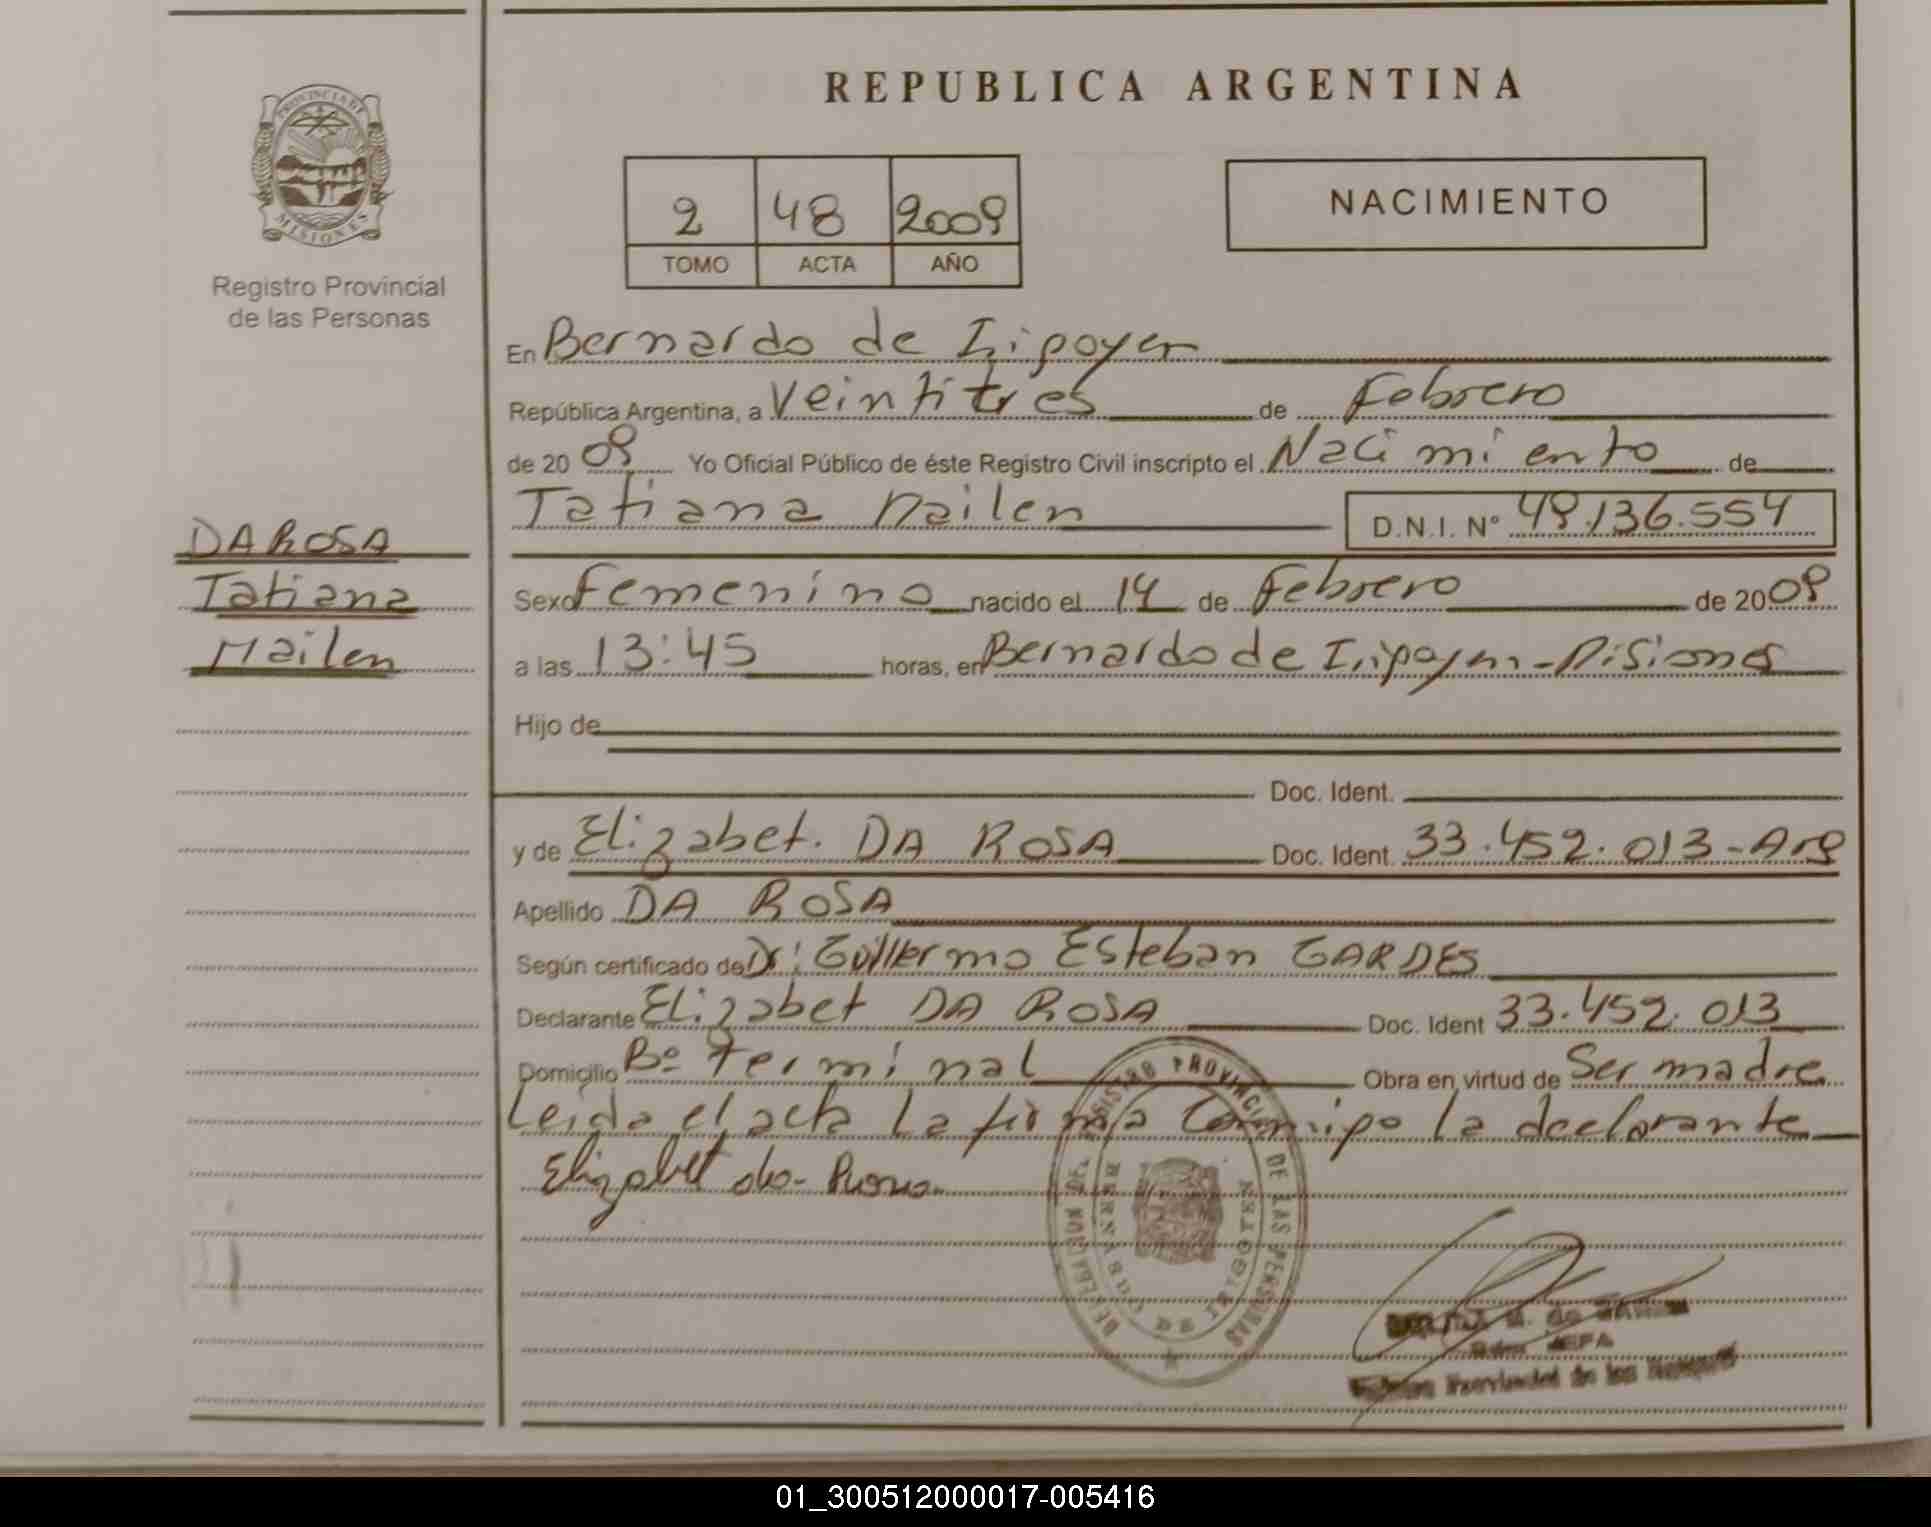 REPUBLICA ARGENTINA
PROVINCIA DE
MISIONES
Registro Provincial
de las Personas
2 48 2009
TOMO ACTA AÑO
NACIMIENTO
En Bernardo de Irigoyen
República Argentina, a Veintitres de Febrero
de 2009 Yo Oficial Público de éste Registro Civil inscripto el Nacimiento de
Tatiana Mailen D.N.I. N° 49.136.554
DA ROSA
Tatiana
Mailen
Sexo Femenino nacido el 14 de Febrero de 2009
a las 13:45 horas, en Bernardo de Irigoyen - Misiones
Hijo de
Doc. Ident.
y de Elizabet. DA ROSA Doc. Ident. 33.452.013-Arg
Apellido DA ROSA
Según certificado de Dr: Guillermo Esteban GARDES
Declarante Elizabet DA ROSA Doc. Ident 33.452.013
Domicilio B° Terminal Obra en virtud de Ser madre
Leida el acta La firma Conmigo la declarante
Elizabet da Rosa
REGISTRO PROVINCIAL DE LAS PERSONAS
JEFA
01_300512000017-005416